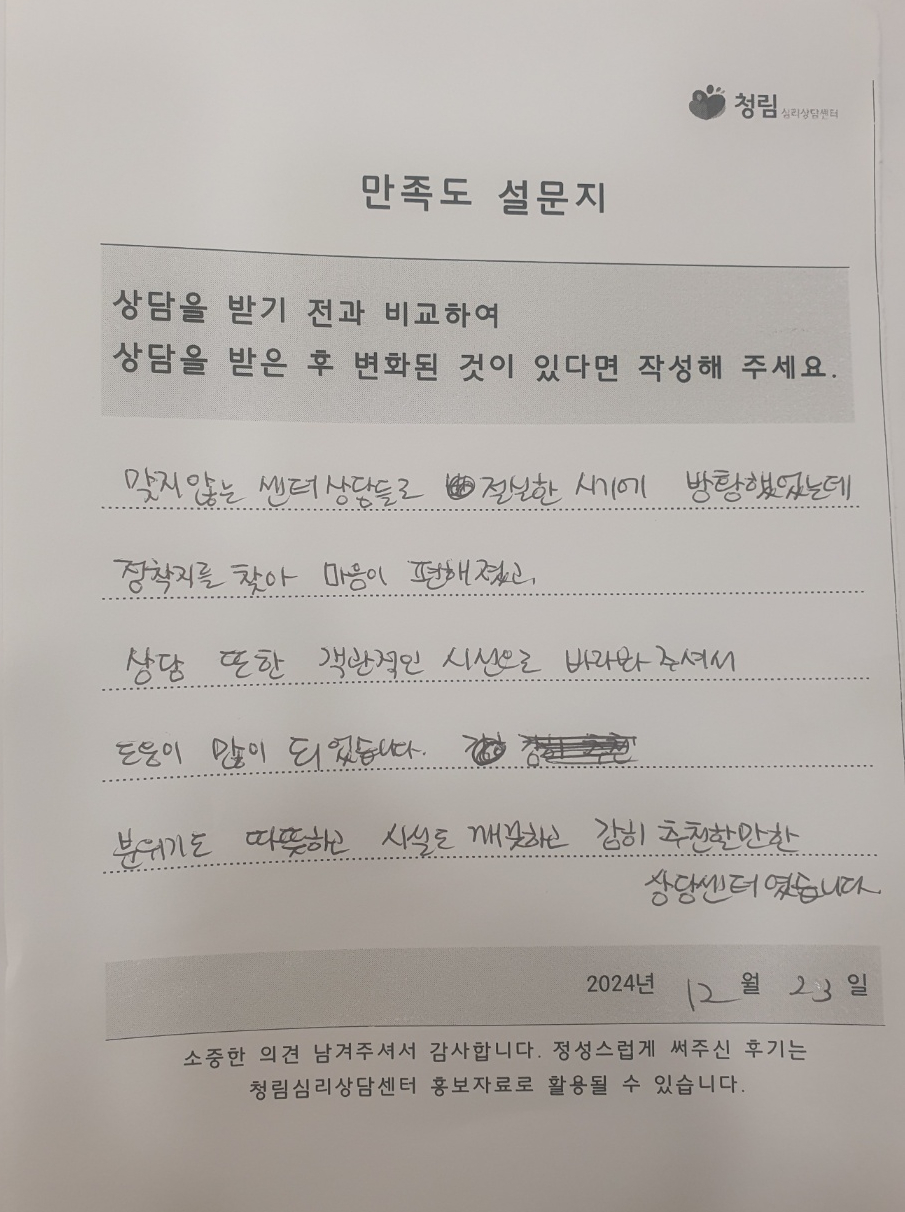 청림 심리상담센터
만족도 설문지
상담을 받기 전과 비교하여
상담을 받은 후 변화된 것이 있다면 작성해 주세요.
맞지않는 센터상담들로 절실한 시기에 방황했었는데
정착지를 찾아 마음이 편해졌고,
상담 또한 객관적인 시선으로 바라봐 주셔서
도움이 많이 되었습니다.
분위기도 따뜻하고 시설도 깨끗하고 감히 추천할만한
상담센터였습니다
2024년 12월 23일
소중한 의견 남겨주셔서 감사합니다. 정성스럽게 써주신 후기는
청림심리상담센터 홍보자료로 활용될 수 있습니다.